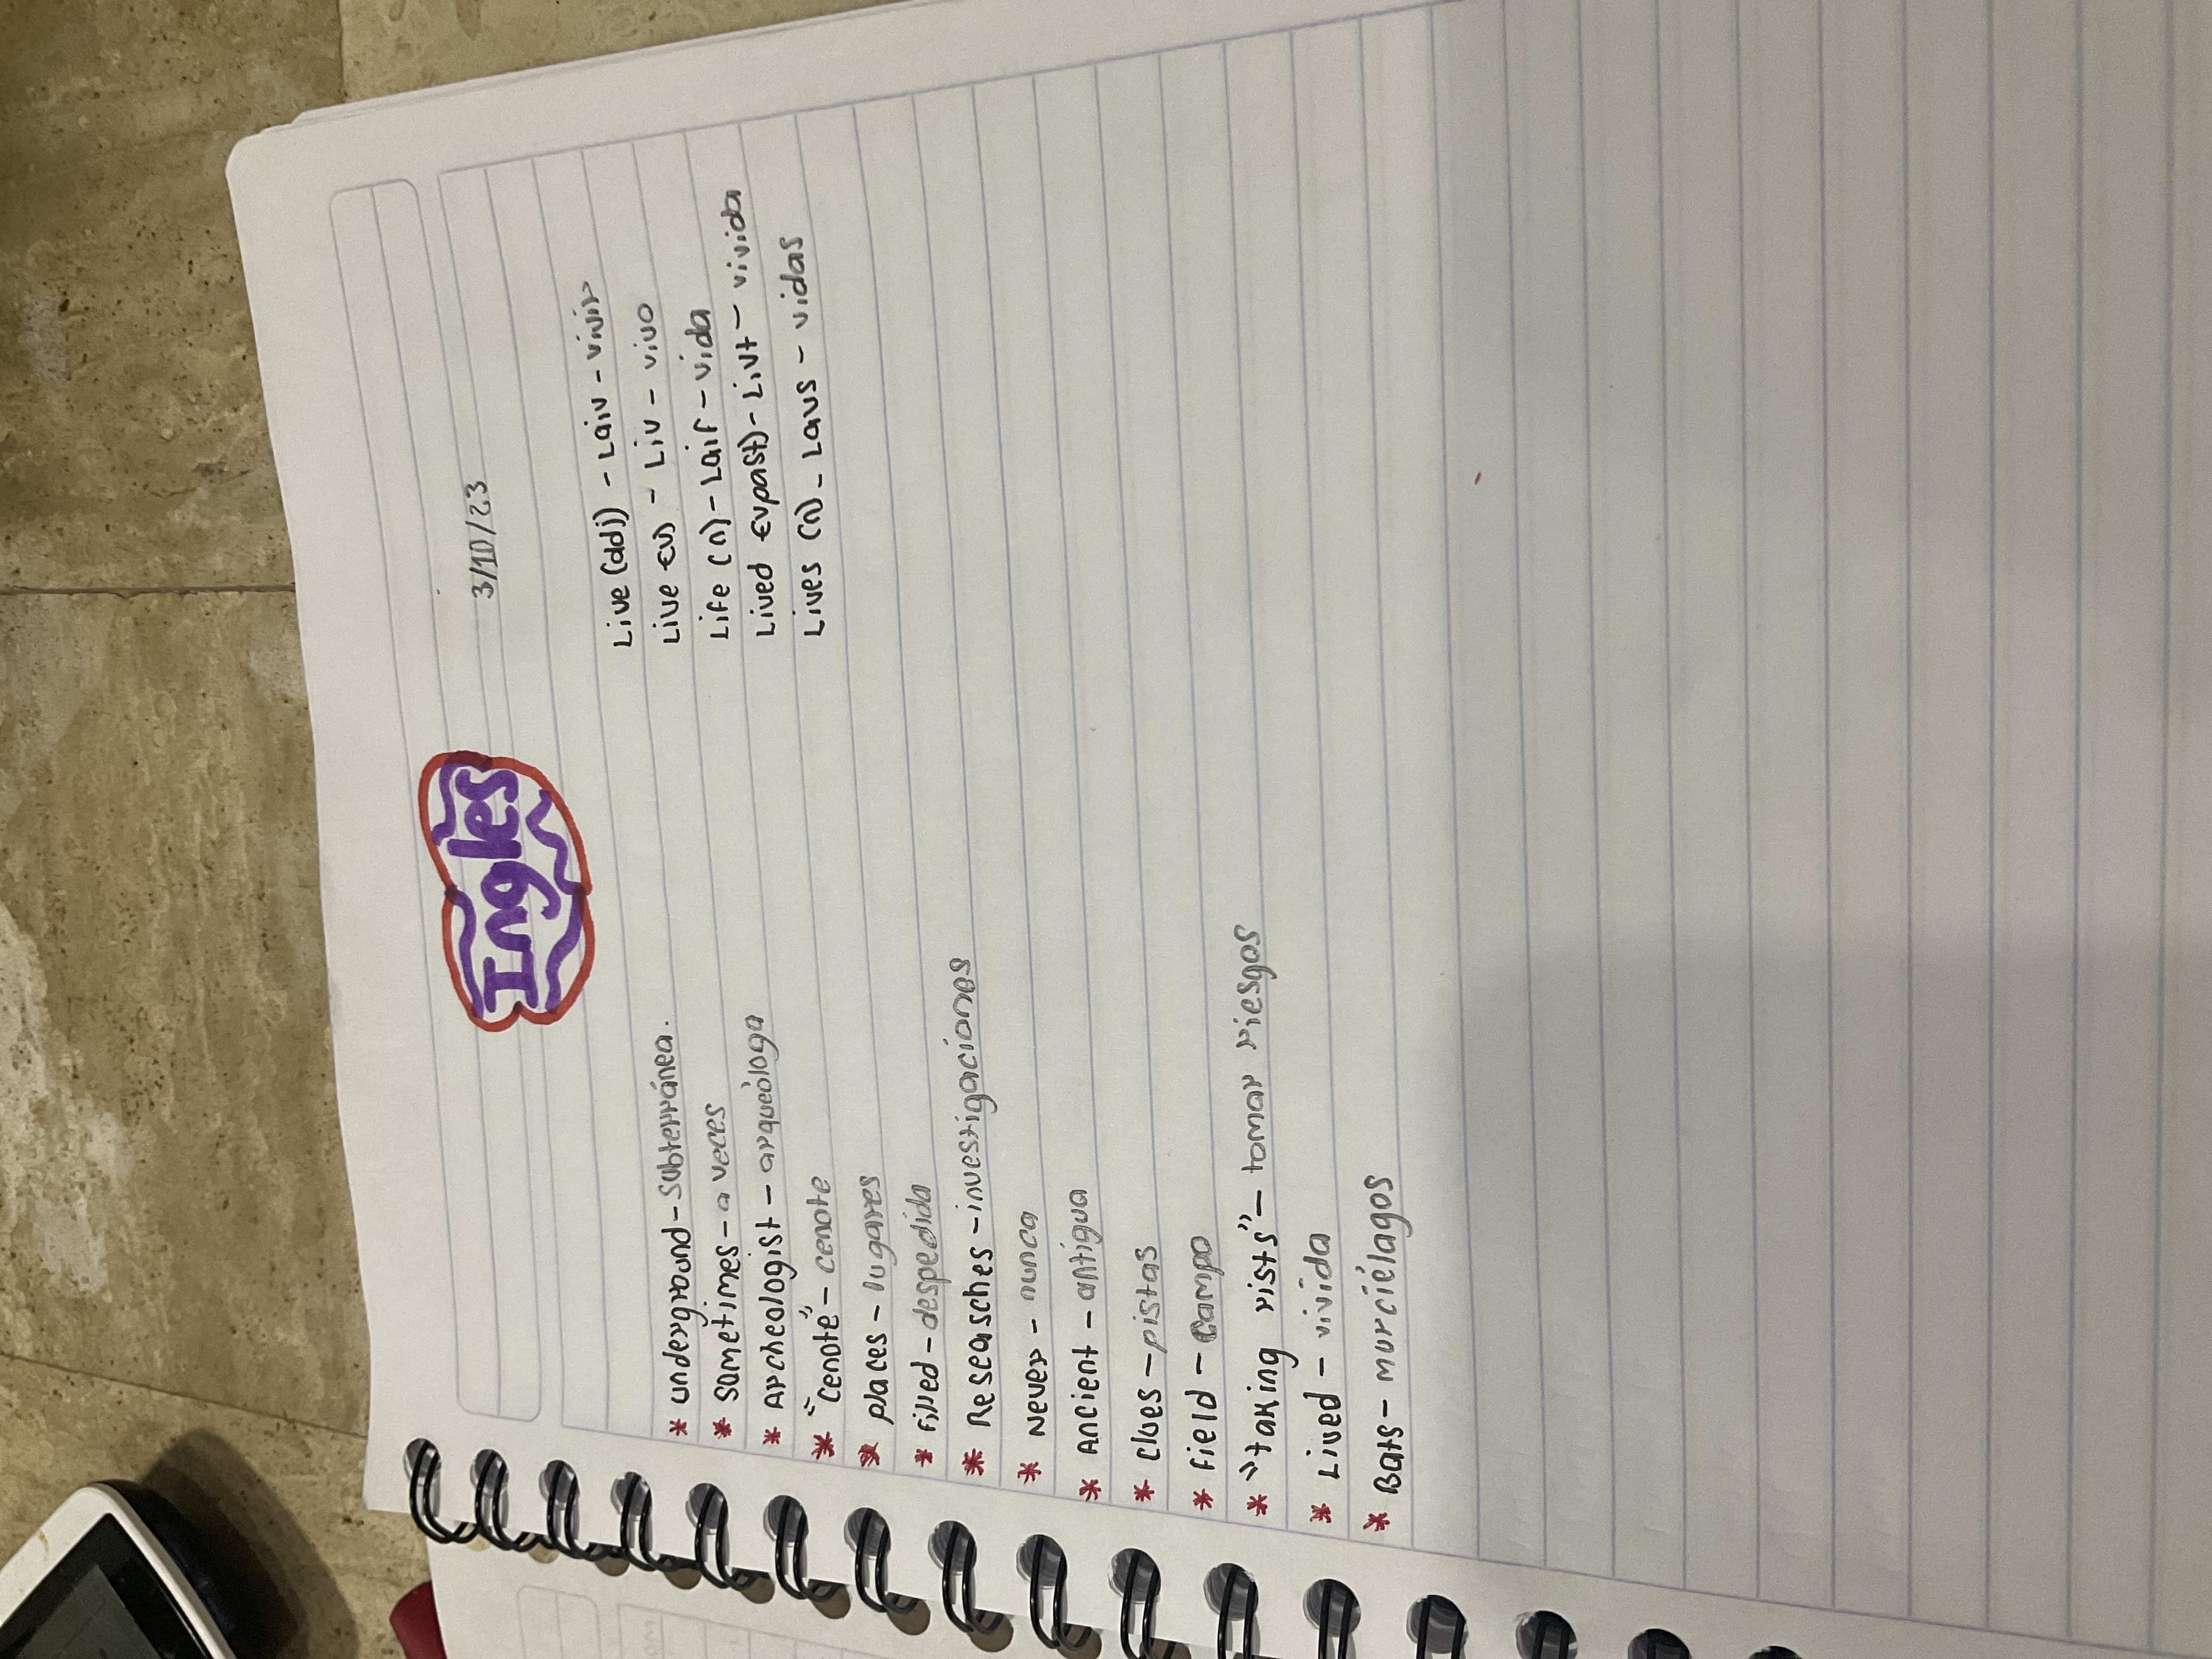 Ingles
3/10/23
* underground - subterránea.
* sometimes - a veces
* Archeologist - arqueóloga
* "cenote" - cenote
* places - lugares
* filled - despedida
* Reseasches - investigaciones
* Never - nunca
* Ancient - antigua
* clues - pistas
* field - campo
* "taking rists" - tomar riesgos
* Lived - vivida
* Bats - murciélagos
Live (adj) - Laiv - vivir
Live (v) - Liv - vivo
Life (n) - Laif - vida
Lived (vpast) - Livt - vivida
Lives (n) - Lavs - vidas